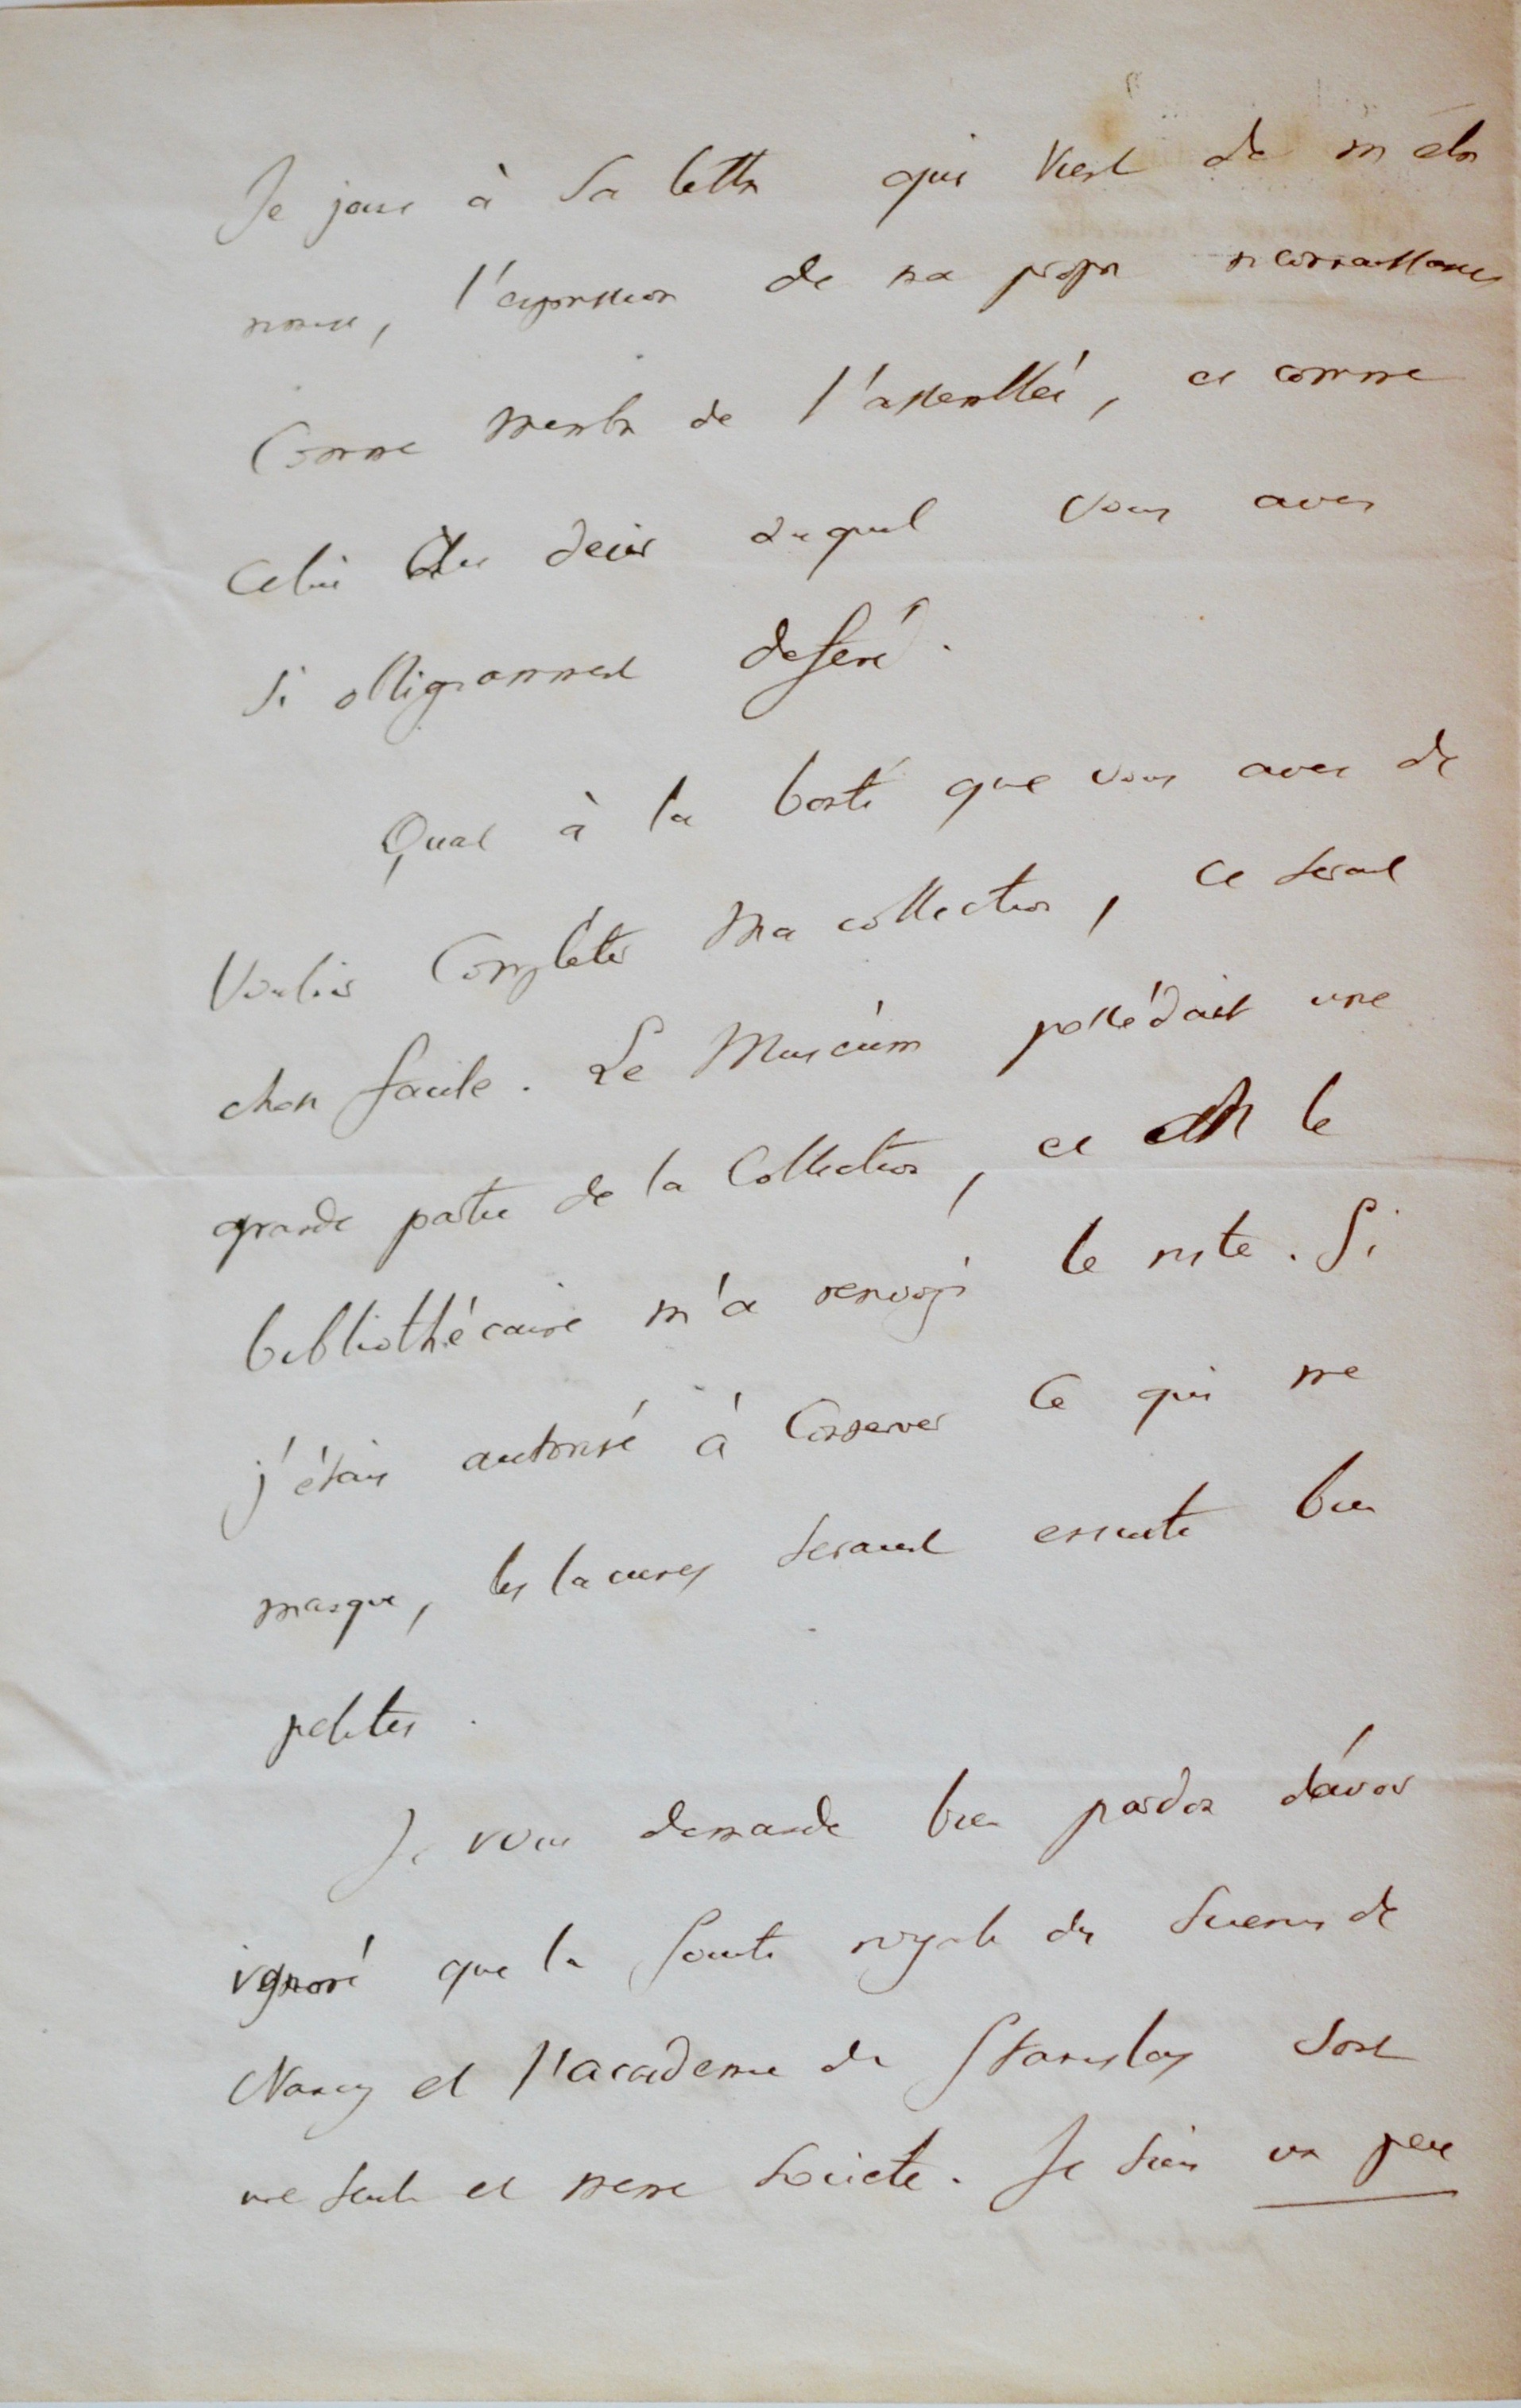 Je joins à sa lettre qui vient de m'être
remise, l'expression de ma propre reconnaissance
comme membre de l'assemblée, et comme
celui du désir auquel vous avez
si obligeamment déféré.
Quant à la bonté que vous avez de
vouloir compléter ma collection, ce serait
chose facile. Le Muséum possédait une
grande partie de la collection, et le
bibliothécaire m'a renvoyé le reste. Si
j'étais autorisé à conserver ce qui me
manque, les lacunes seraient ensuite bien
petites.
Je vous demande bien pardon d'avoir
ignoré que la Société royale des Sciences de
Nancy et l'académie de Stanislas sont
une seule et même société. Je suis un peu